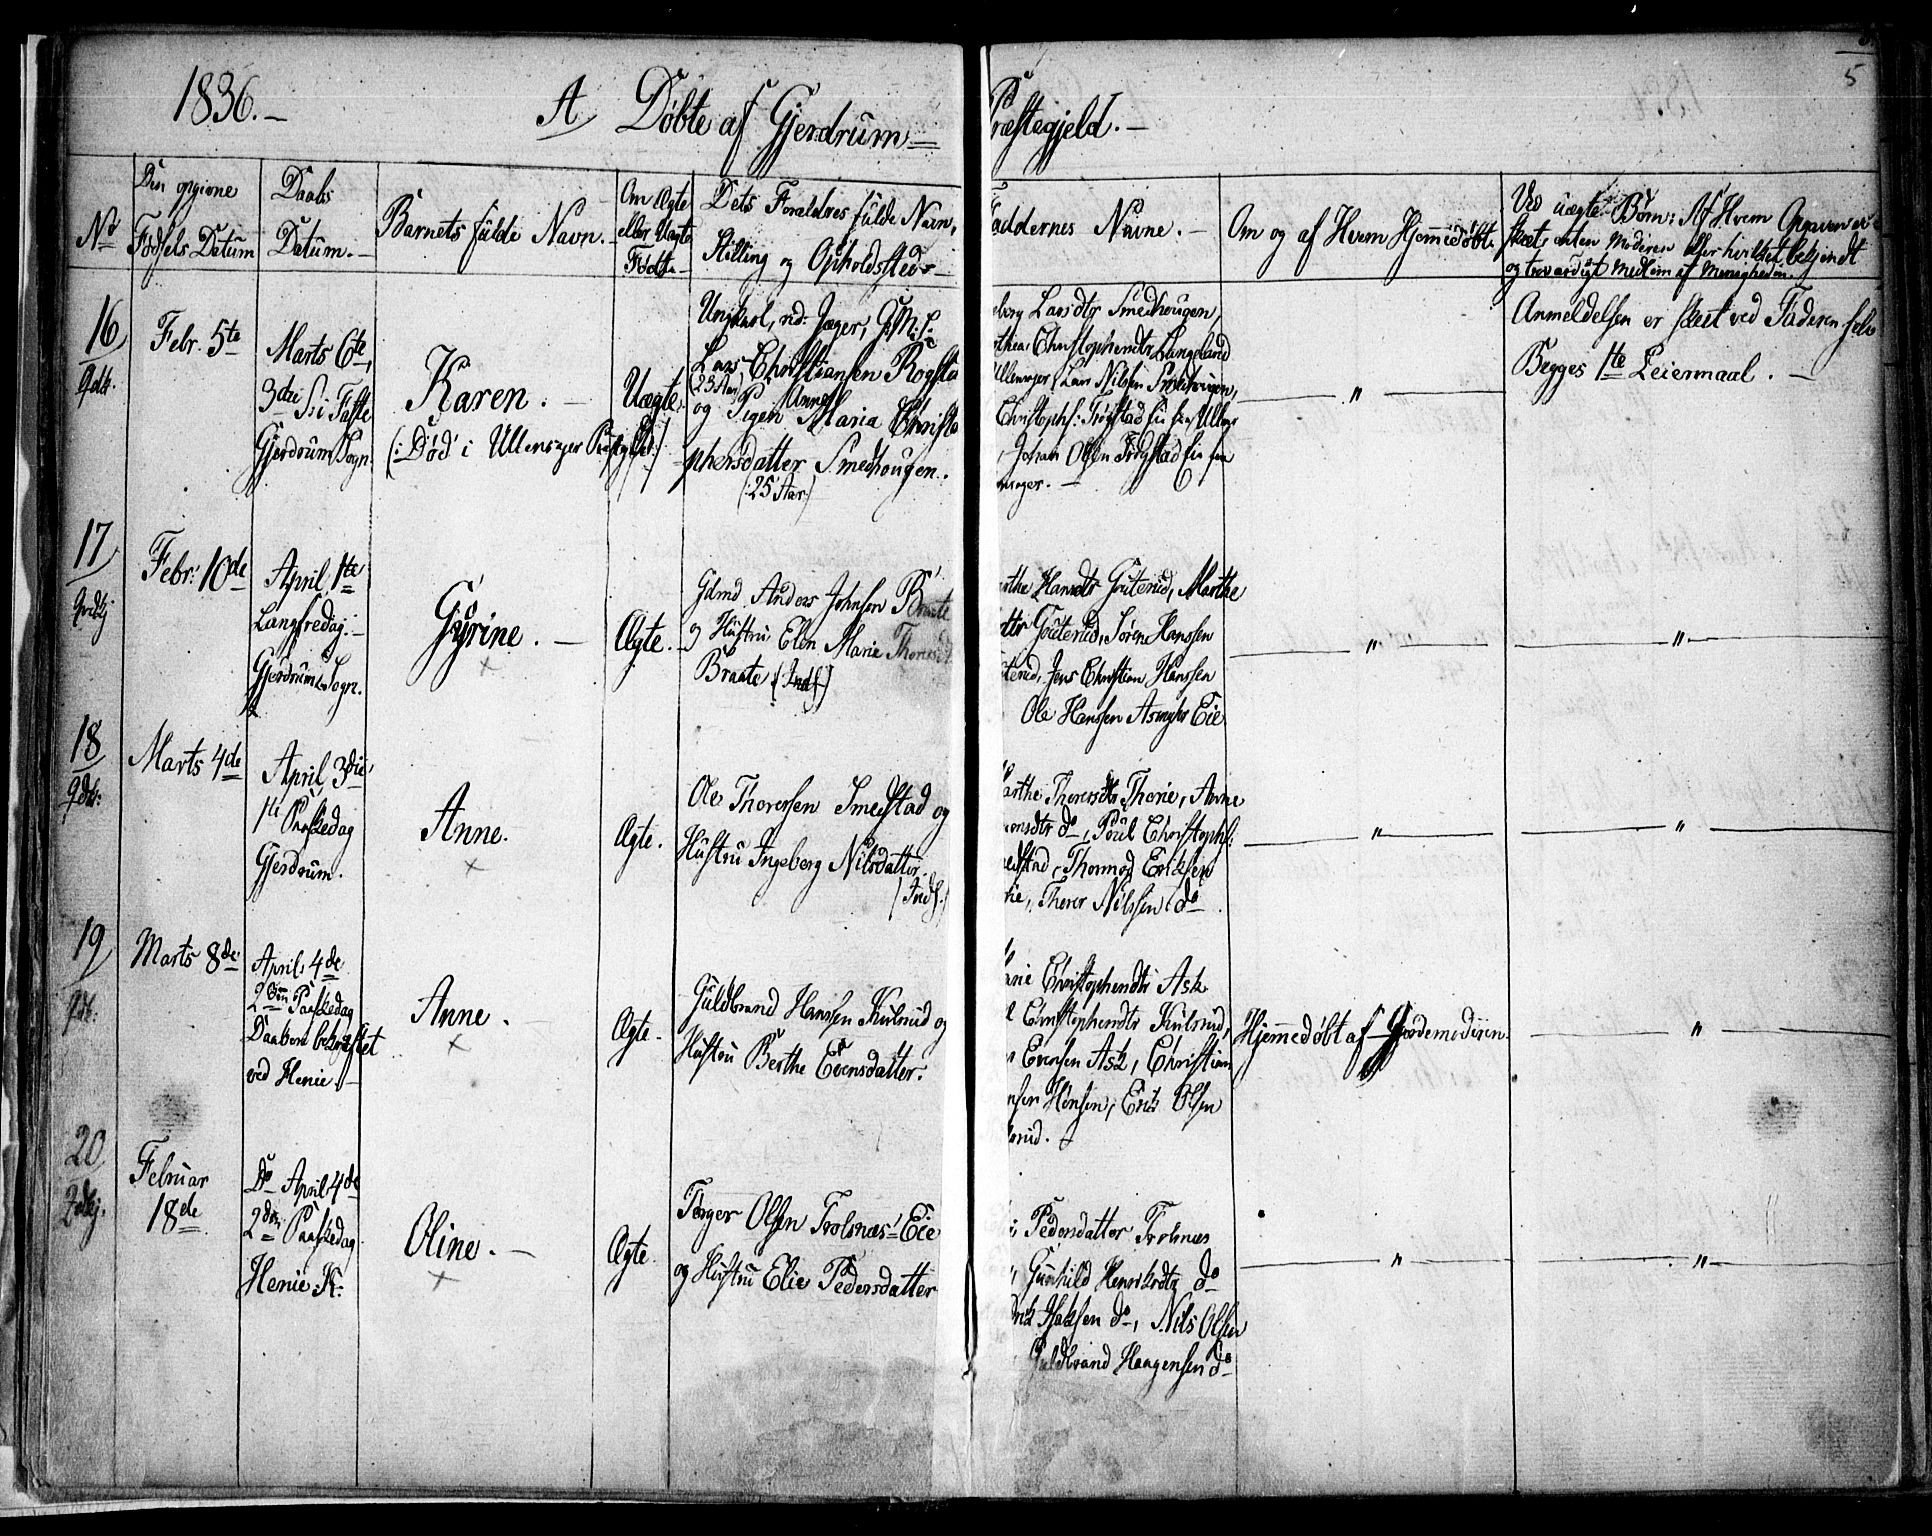 5
1836.—
A Døbte af Gjerdrum= Præstegjeld.—
No
Den opgivne
Fødsels Datum
Daabs
Datum.—
Barnets fulde Navn.—
Om Ægte
eller Uægte
Født.—
Dets Forældres fulde Navn,
Stilling og Opholdssted.—
Faddernes Navne.—
Om og af Hvem Hjemmedøbt.
Ved uægte Børn: Af Hvem Opgaven er
skeet, enten Moderen eller hvilket bekjendt
og troværdigt Medlem af Menigheden.
16
Febr. 5te
Marts 6te,
3die S: i Faste
Gjerdrum Sogn.
Karen.—
(: Død i Ullensager Præstegjeld:)
Uægte.
Ungkarl, nd: Jæger, G.M.S:
Lars Christiansen Rogsta
(23 Aar)
og Pigen Anne Maria Christo
phersdatter Smedhougen.
(: 25 Aar)
eborg Larsdtr Smedhougen,
othea Christophersdtr Langeland
Ullensager, Lars Nilsen Smedhougen,
Christophs: Frogstad
Johan Olsen Frogstad
ensager.—
"
Anmeldelsen er skeet ved Faderen selv
Begges 1te Leiermaal.—
17
Febr. 10de
April 1te
Langfredag.—
Gjerdrum Sogn.
Gyrine.—
Ægte.
Gdmd Anders Johnsen Braate
og Hustru Elen Marie Thoresd
Braate (Inds)
arthe Hansdtr Gouterud, Marthe
dtr Gouterud, Søren Hanssen
uterud, Jens Christian Hanssen
Ole Hanssen Eie
"
"
18
Marts 4de
April 3die,
1te Paaskedag
Gjerdrum.
Anne.
Ægte.
Ole Thoresen Smedstad og
Hustru Ingeborg Nilsdatter.
(Inds.)
arthe Thorersdtr Thorie, Anne
ensdtr do, Poul Christophs:
edstad, Thormod Eriksen
rie, Thorer Nilssen do
"
"
19
Marts 8de
April 4de
2den Paaskedag
Daaben bekræftet
ved Henie.—
Anne.
Ægte.
Guldbrand Hanssen Kulsrud og
Hustru Berthe Evensdatter.
arie Christophersdtr Ask
Christophersdtr Kulsrud,
Evensen Ask, Christian
nsen Hansen, Erik Olsen
srud.
Hjemmedøbt af Gjordemoderen.
"
20
Februar
18de
Do April 4de
2den Paaskedag
Henie K:
Oline.—
Ægte.
Torger Olsen Frolsnæs=Eie
og Hustru Elie Pedersdatter
Pedersdatter Frolsnæs
Gunhild Henriksdtr do
rik Isaksen do, Nils Olsen
Guldbrand Haagensen do
"
"